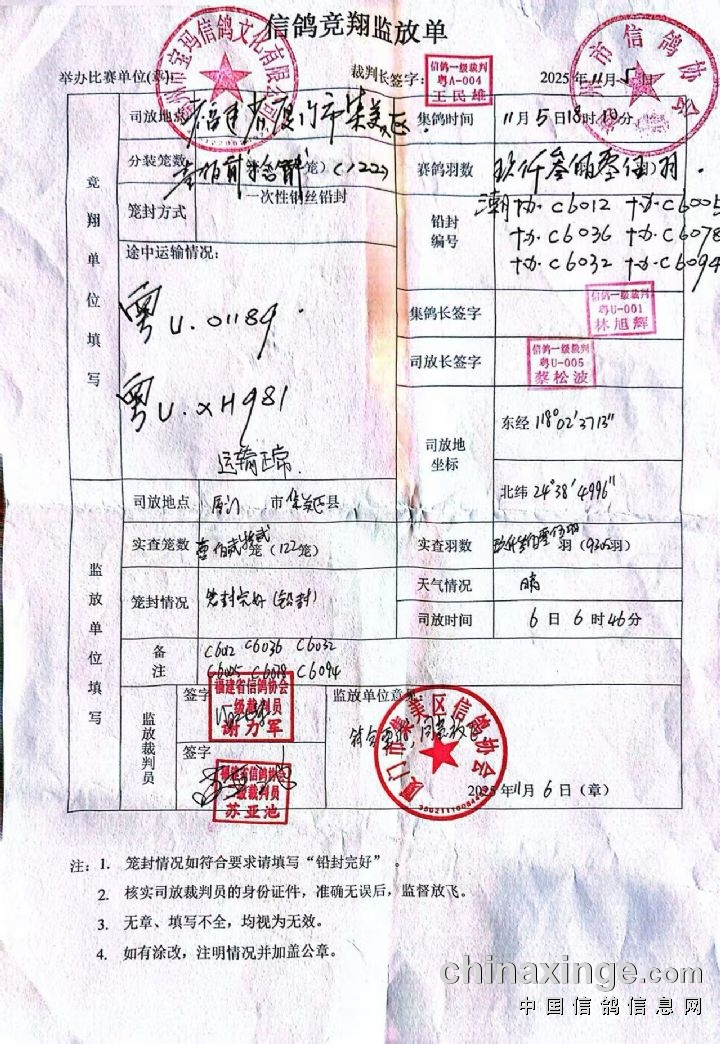 信鸽竞翔监放单
举办比赛单位(章)
裁判长签字:
信鸽一级裁判
粤A-004
王民雄
2025年11月5日
宝玛信鸽文化有限公司
市信鸽协会
竞翔单位填写
司放地点 福建省厦门市集美区.
集鸽时间 11月5日18时10分
分装笼数 壹佰贰拾贰(笼)(122)
赛鸽羽数 玖仟叁佰零伍(羽)羽.
笼封方式 一次性钢丝铅封
铅封编号 潮协.C6012 协.C6005
协.C6036 协.C6078
协.C6032 协.C6094
途中运输情况:
粤U.01189.
粤U.XH981
运输正常.
集鸽长签字
信鸽一级裁判
粤U-001
林旭辉
司放长签字
信鸽一级裁判
粤U-005
蔡松波
司放地坐标
东经 118°02'3713"
北纬 24°38'4996"
监放单位填写
司放地点 厦门 市集美区县
实查笼数 壹佰贰拾贰笼(122笼)
实查羽数 玖仟叁佰零伍羽羽(9305羽)
笼封情况 笼封完好(铅封)
天气情况 晴
司放时间 6日6时46分
备注 C6012 C6036 C6032
C6005 C6078 C6094
监放裁判员
签字
福建省信鸽协会
一级裁判员
谢力军
签字
福建省信鸽协会
一级裁判员
苏亚池
监放单位意见:
符合要求,同意放飞
厦门市集美区信鸽协会
2025年11月6日(章)
注:1. 笼封情况如符合要求请填写“铅封完好”。
2. 核实司放裁判员的身份证件,准确无误后,监督放飞。
3. 无章、填写不全,均视为无效。
4. 如有涂改,注明情况并加盖公章。
chinaxinge.com
中国信鸽信息网